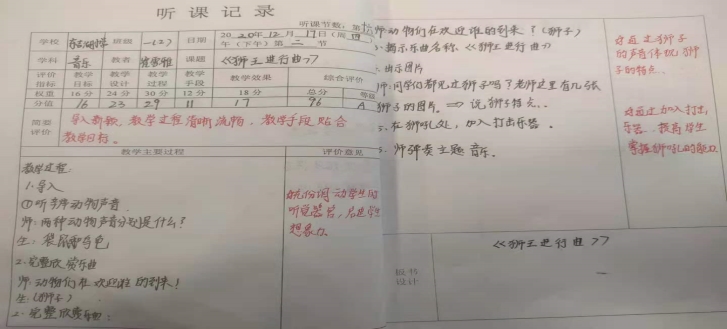 听课记录
听课节数：第
学校 班级 一（2） 日期 2020年12月17日（周四）
年（下午）第二节
学科 音乐 教者 课题 《狮王进行曲》
评价指标 教学目标 教学设计 教学过程 教学手段 教学效果 综合评价
权重 16分 24分 30分 12分 18分 总分 等级
分值 16 23 29 11 17 96 A
简要评价 导入新颖，教学过程清晰流畅，教学手段贴合
教学目标。
教学主要过程 评价意见
教学过程：
1.导入
①听辨动物声音
师：两种动物声音分别是什么？
生：袋鼠和乌龟
2.完整欣赏乐曲
师：动物们在欢迎谁的到来！
生：（狮子）
2.完整欣赏乐曲：
学生的
想象力。
师：动物们在欢迎谁的到来？（狮子）
揭示乐曲名称，《狮王进行曲》
出示图片
师：同学们都见过狮子吗？老师这里有几张
狮子的图片。⇒ 说狮子特点。
5.在狮吼处，加入打击乐器。
师弹奏主题音乐。
狮子
的声音体现狮
子的特点。
通过加入打击
乐器，提高学生
掌握狮吼的
板书设计
《狮王进行曲》